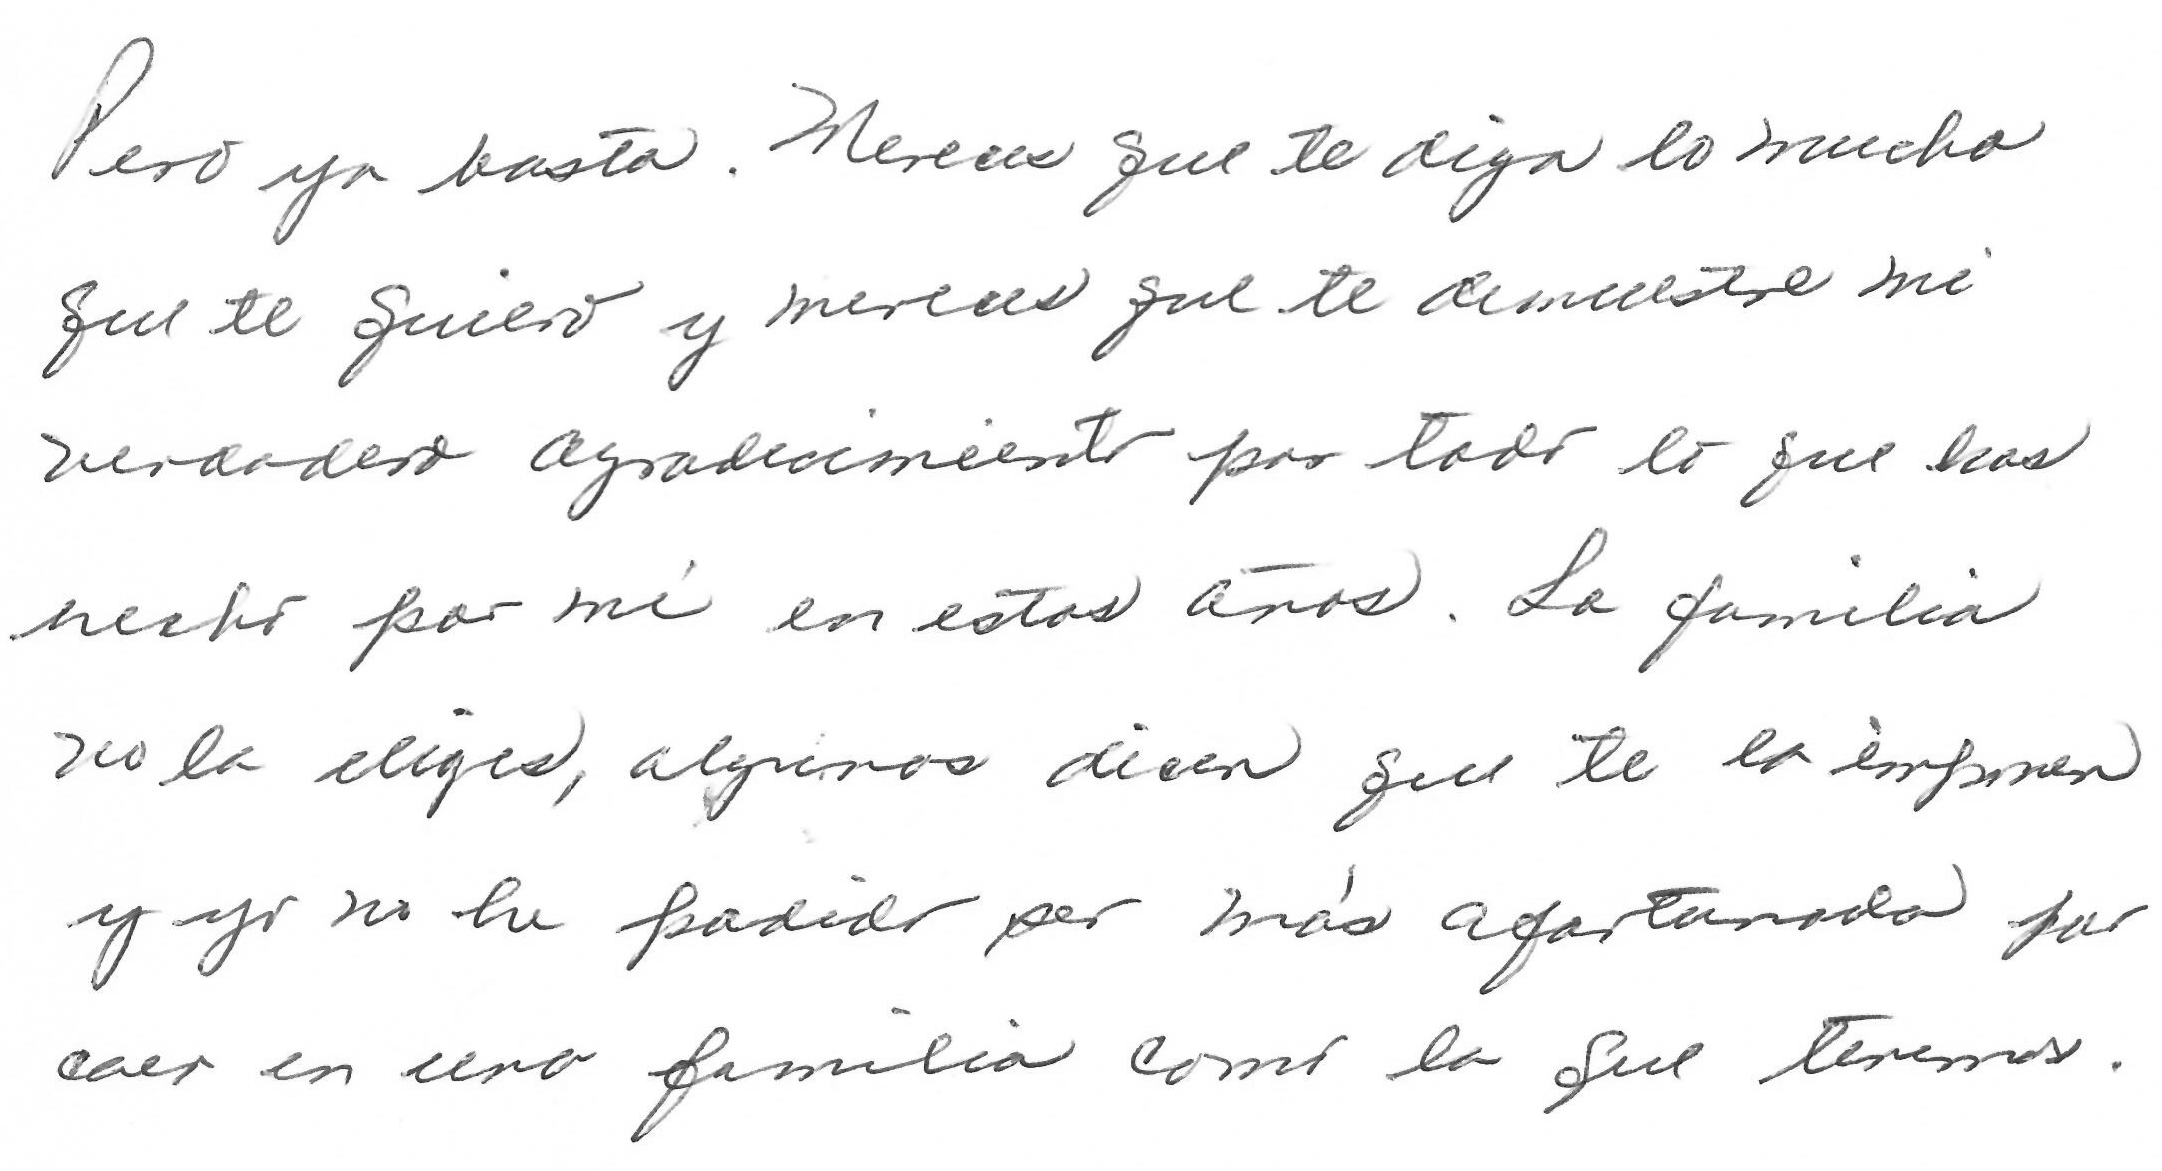 Pero ya basta. Mereces que te diga lo mucho
que te quiero y mereces que te demuestre mi
verdadero agradecimiento por todo lo que has
hecho por mí en estos años. La familia
no la eliges, algunos dicen que te la imponen
y yo no he podido ser más afortunada por
caer en una familia como la que tenemos.